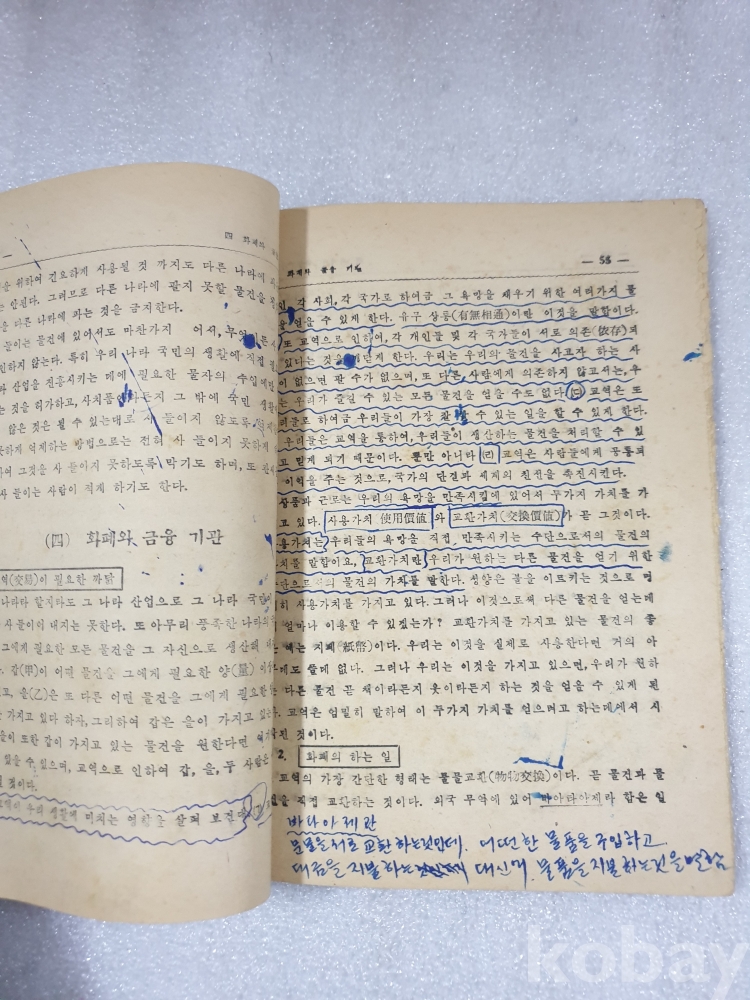 四 화폐와 금융
을 위하여 긴요하게 사용될 것 까지도 다른 나라에
는 안된다. 그러므로 다른 나라에 팔지 못할 물건을
을 다른 나라에 파는 것을 금지한다.
들이는 물건에 있어서도 마찬가지
인하지 않는다. 특히 우리 나라 국민의 생활에 직접
산업을 진흥시키는 데에 필요한 물자의 수입에만
는 것을 허가하고, 사치품이라든지 그 밖에 국민 생활
않은 것은 될 수 있는대로 사 들이지 않도록
하게 억제하는 방법으로는 전혀 사 들이지 못하게
하여 그것을 사 들이지 못하도록 막기도 하며, 또
사 들이는 사람이 적게 하기도 한다.
(四) 화폐와 금융 기관
역(交易)이 필요한 까닭
나라라 할지라도 그 나라 산업으로 그 나라 국민이
사 물이이 내지는 못한다. 또 아무리 풍족한 나라의
그에게 필요한 모든 물건을 그 자신으로 생산해
갑(甲)이 어떤 물건을 그에게 필요한 양(量)
로, 을(乙)은 또 다른 어떤 물건을 그에게 필요한
가지고 있다 하자. 그리하여 갑은 을이 가지고 있는
을이 또한 갑이 가지고 있는 물건을 원한다면
있을 수 있으며, 교역으로 인하여 갑, 을, 두 사람은
된 것이다.
교역이 우리 생활에 미치는 영향을 살펴 보건대
화폐와 금융 기관
— 55 —
인, 각 사회, 각 국가로 하여금 그 욕망을 채우기 위한 여러가지 물
을 얻을 수 있게 한다. 유무 상통(有無相通)이란 이것을 말함이다.
또 교역으로 인하여, 각 개인들 및 각 국가들이 서로 의존(依存)되
있다는 것을 깨닫게 한다. 우리는 우리의 물건을 사고자 하는 사
이 없으면 팔 수가 없으며, 또 다른 사람에게 의존하지 않고서는, 우
는 우리가 즐길 수 있는 모든 물건을 얻을 수도 없다. (ㄷ) 교역은 또
리들로 하여금 우리들이 가장 잘 할 수 있는 일을 할 수 있게 한다.
우리들은 교역을 통하여, 우리들이 생산하는 물건을 처리할 수 있
고 믿게 되기 때문이다. 뿐만 아니라 (ㄹ) 교역은 사람들에게 공통되
이익을 주는 것으로, 국가의 단결과 세계의 친선을 촉진시킨다.
상품과 근로는 우리의 욕망을 만족시킴에 있어서 두가지 가치를 가
고 있다. 사용가치 使用價値 와 교환가치(交換價値)가 곧 그것이다.
용가치는 우리들의 욕망을 직접 만족시키는 수단으로서의 물건의
치를 말함이요, 교환가치란 우리가 원하는 다른 물건을 얻기 위한
수단으로서의 물건의 가치를 말한다. 성냥은 불을 이르키는 것으로 명
히 사용가치를 가지고 있다. 그러나 이것으로써 다른 물건을 얻는데
얼마나 이용할 수 있겠는가? 교환가치를 가지고 있는 물건의 좋
예는 지폐(紙幣)이다. 우리는 이것을 실제로 사용한다면 거의 아
데도 쓸데 없다. 그러나 우리는 이것을 가지고 있으면, 우리가 원하
는 다른 물건 곧 책이라든지 옷이라든지 하는 것을 얻을 수 있게 된
다. 교역은 엄밀히 말하여 이 두가지 가치를 얻으려고 하는데에서 시
된 것이다.
2. 화폐의 하는 일
교역의 가장 간단한 형태는 물물교환(物物交換)이다. 곧 물건과 물
을 직접 교환하는 것이다. 외국 무역에 있어 바아타아제라 함은 일
바타아제란
물품을 서로 교환하는것인데. 어떤한 물품을 구입하고
대금을 지불하는 대신에 물품을 지불하는것을 말함
kobay